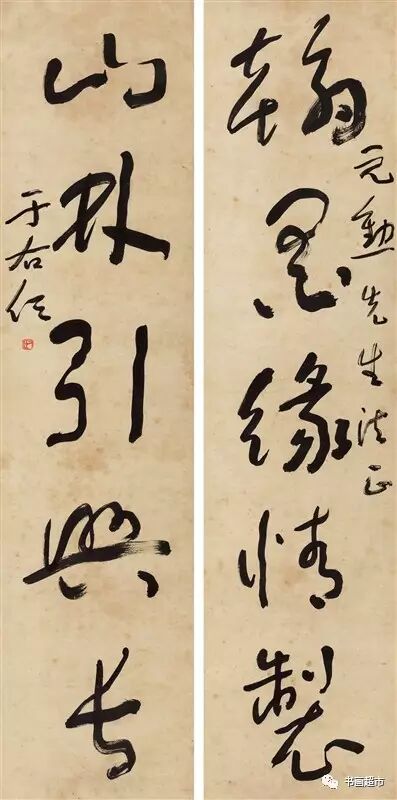 翰墨緣情製
元勳先生法正
山林引興長
于右任
书画超市